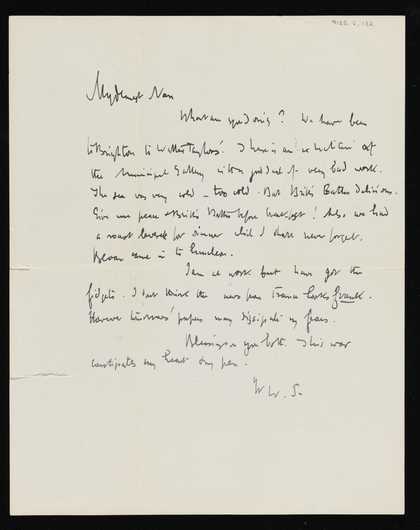 My dearest Nan
What are you doing? We have been
to Brighton to Walter Taylors'. There is an exhibition at
the Municipal Gallery with a good deal of very bad work.
The sea was very cold – too cold. But Baths delicious.
Give me peace & before breakfast! Also we had
a roast for dinner which I shall never forget.
came in to luncheon.
I am at work but have got the
fidgets. I don't think the news from France looks
However tomorrows' papers may dissipate my fears.
Blessings on you both. This war
constipates my heart & my pen.
W. W. S.